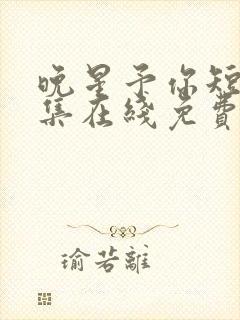 晚星予你短
集在綫免費
瑜若離